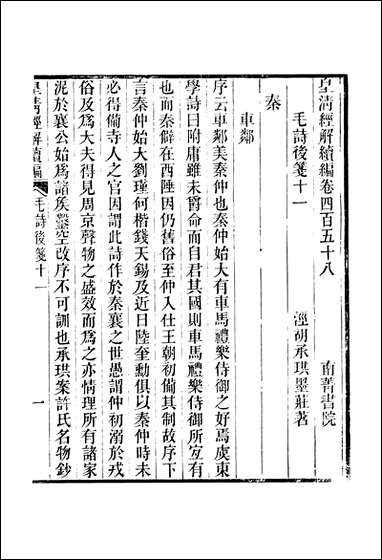 皇清經解續編卷四百五十八　南菁書院
毛詩後箋十一　涇胡承珙墨莊著
秦
車鄰
序云車鄰美秦仲也秦仲始大有車馬禮樂侍御之好焉虞東
學詩曰附庸雖未爵命而自君其國則車馬禮樂侍御所宜有
也而秦僻在西陲因仍舊俗至仲入仕王朝初備其制故序下
言秦仲始大劉瑾何楷錢天錫及近日陸奎勳俱以秦仲時未
必得備寺人之官因謂此詩作於秦襄之世愚謂仲初溺於戎
俗及爲大夫得見周京聲物之盛效而爲之亦情理所有諸家
泥於襄公始爲諸矦鑿空改序不可訓也承珙案許氏名物鈔
皇清經解續編　毛詩後箋十一　一